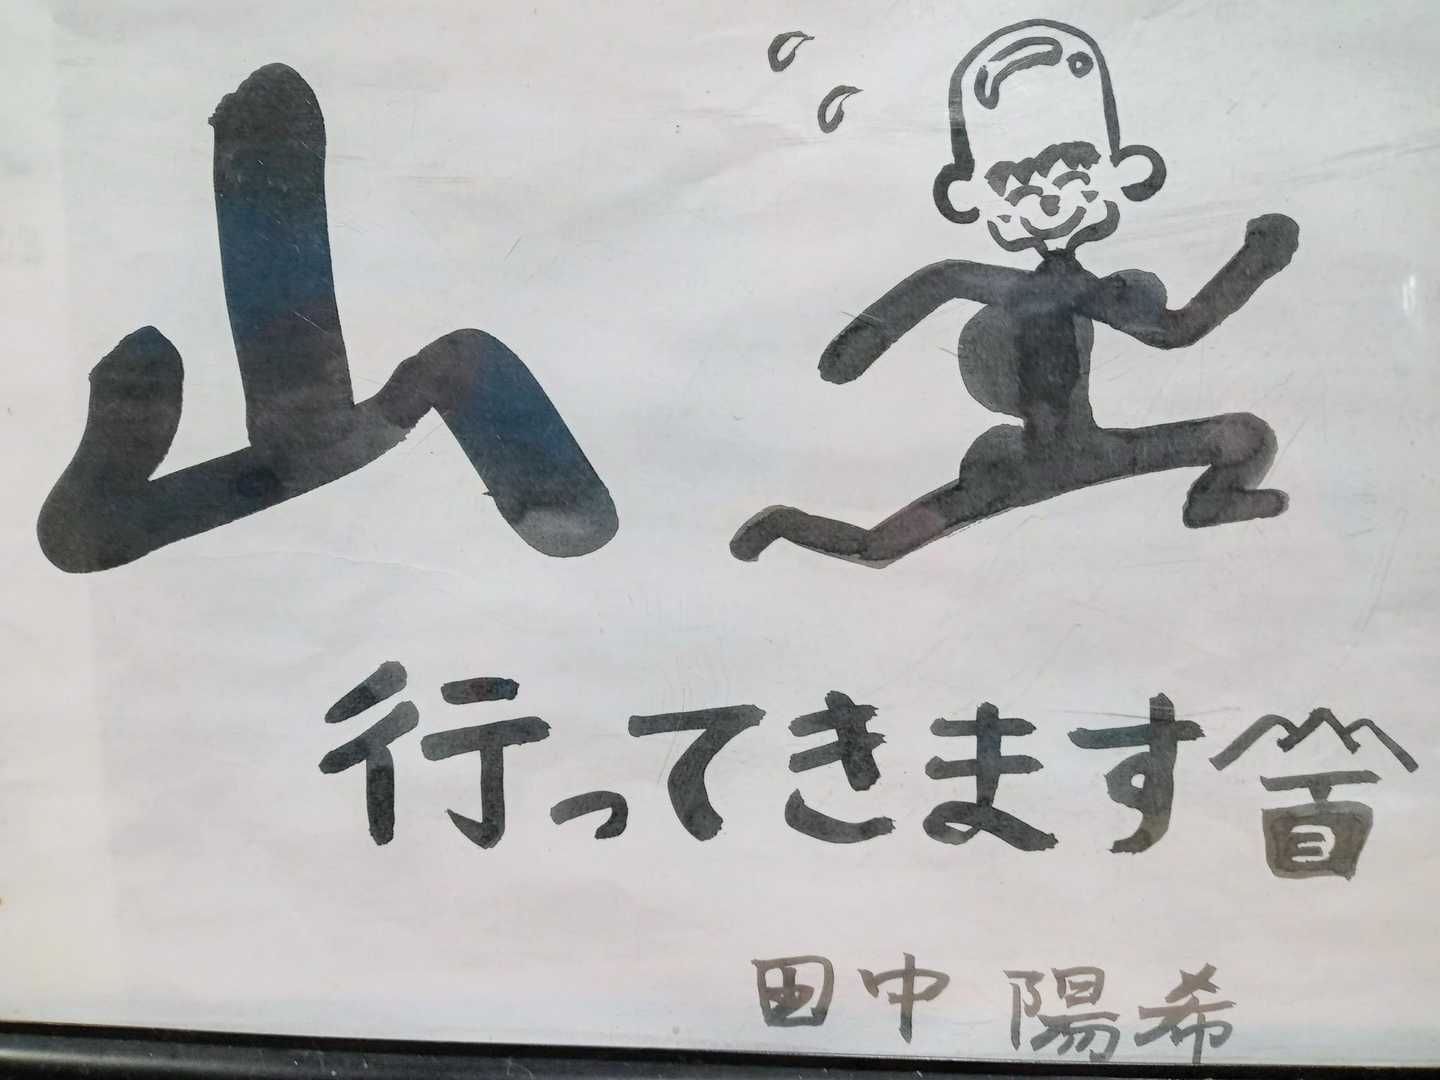 山
行ってきます百3
田中陽希